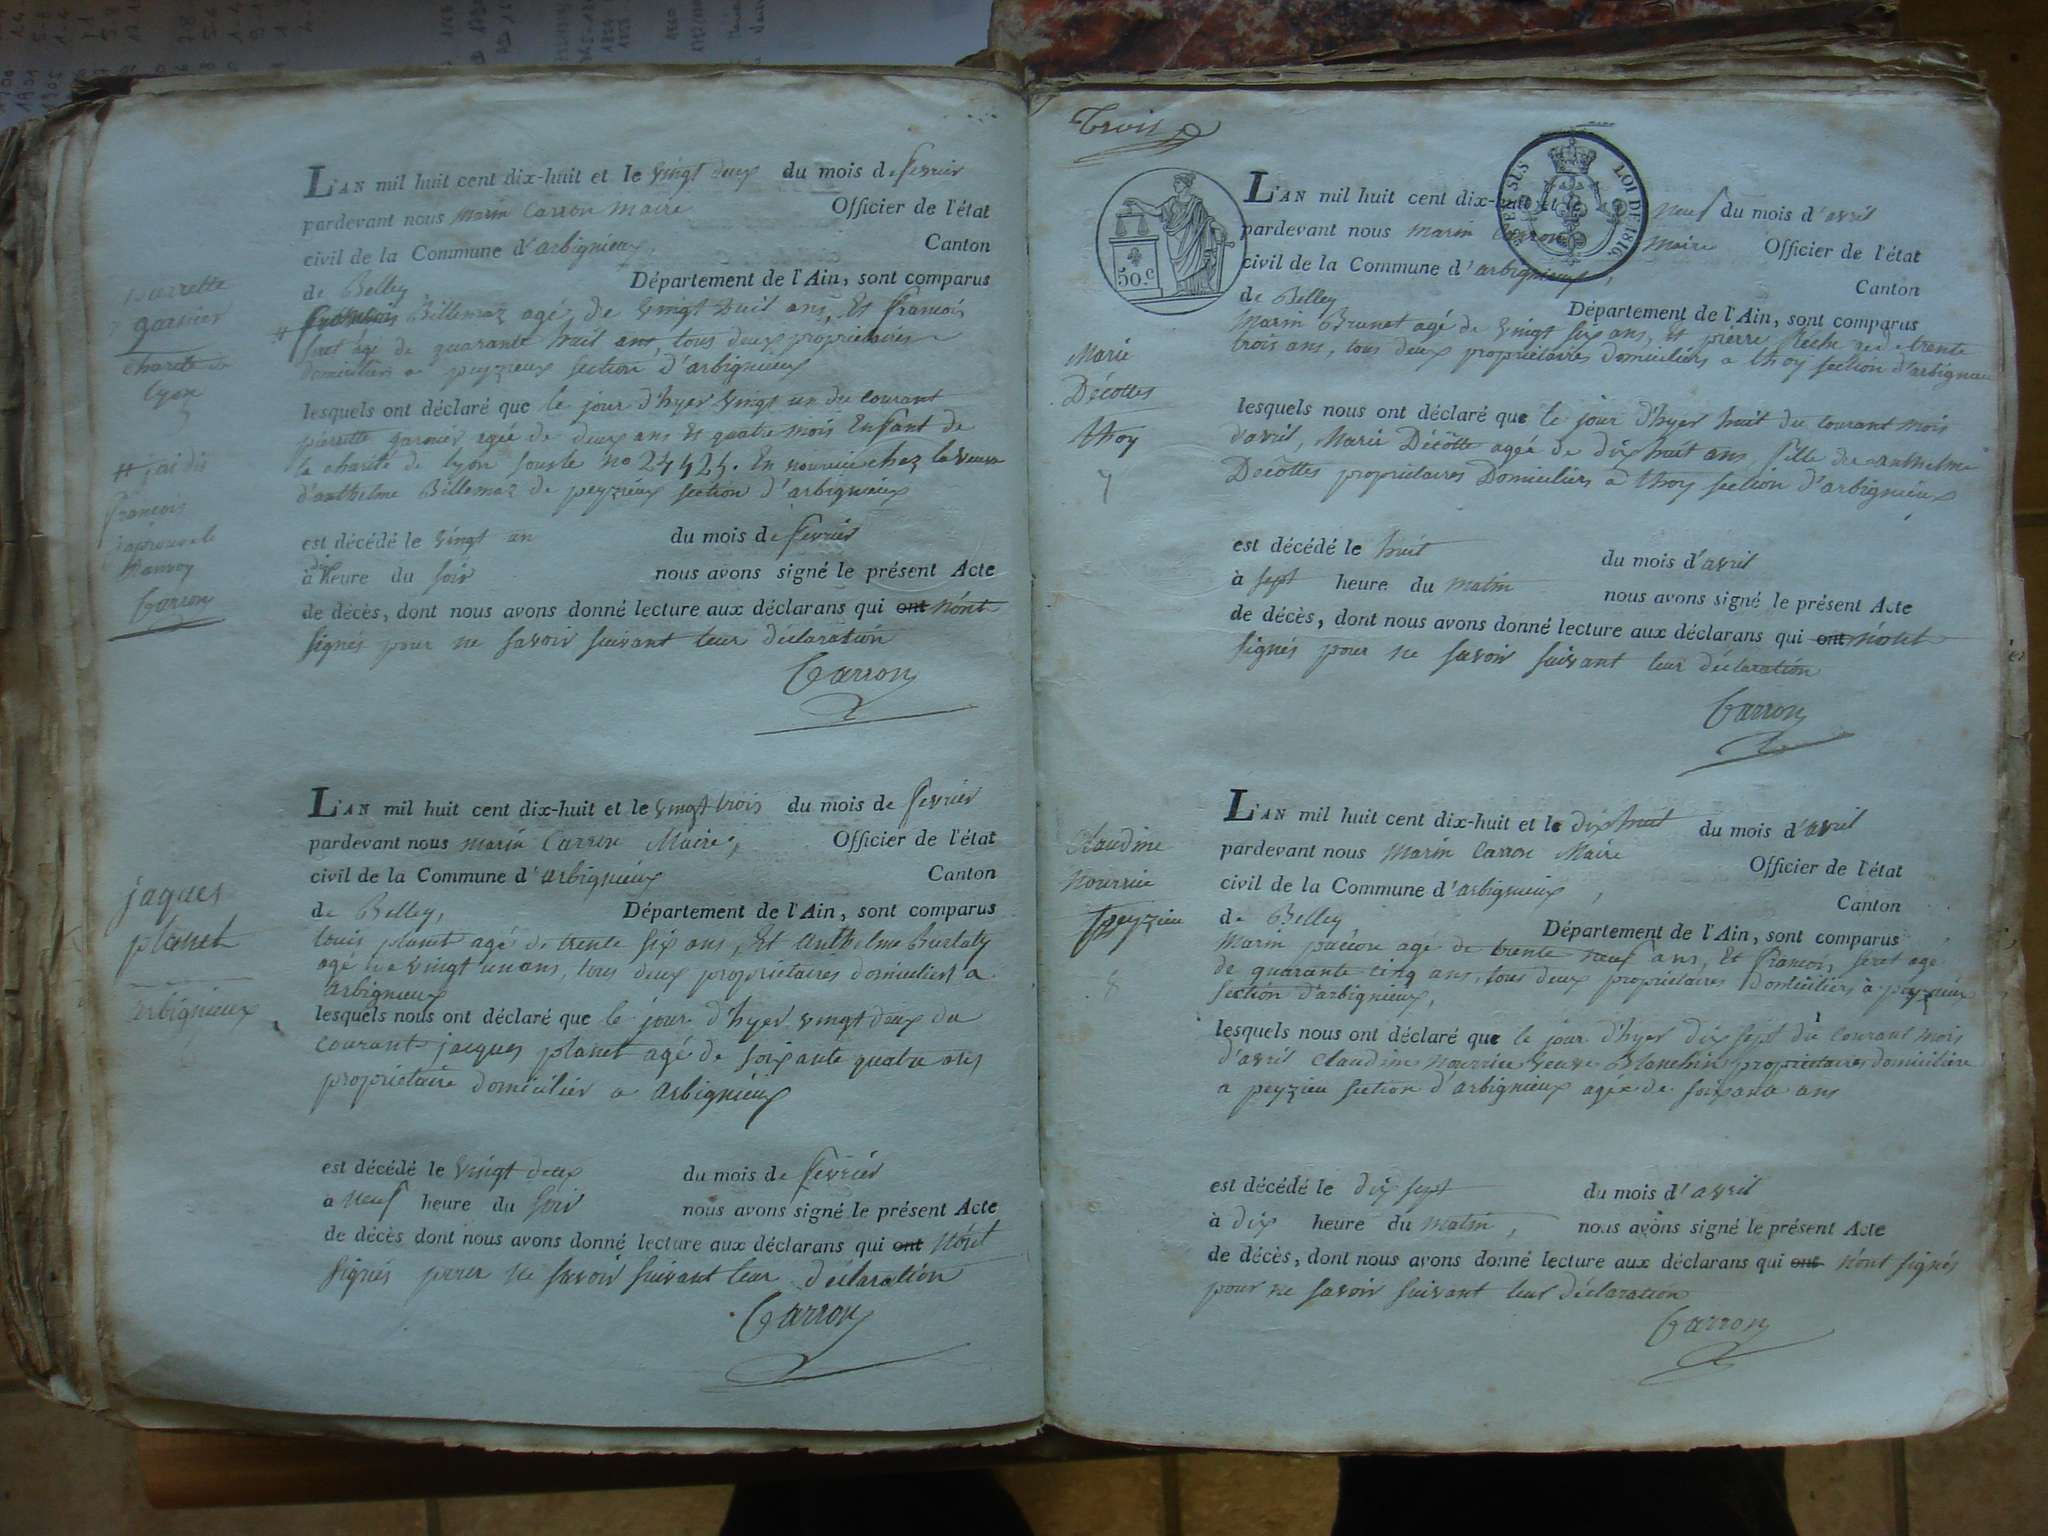 L'AN mil huit cent dix-huit et le vingt deux du mois de fevrier
pardevant nous Marin Carron Maire Officier de l'état
civil de la Commune d'arbignieux, Canton
de Belley Département de l'Ain, sont comparus
# Billemaz agé de vingt huit ans, Et francois
seret agé de quarante huit ans, tous deux propriétaires
domiciliers a peyzieux section d'arbignieux
lesquels ont déclaré que le jour d'hyer vingt un du courant
pierrette garnier agée de deux ans et quatre mois Enfant de
la charité de lyon sous le no 24424. En nourrice chez la veuve
d'anthelme Billemaz de peyzieux section d'arbignieux
est décédé le vingt un du mois de fevrier
à dix heure du soir nous avons signé le présent Acte
de décès, dont nous avons donné lecture aux déclarans qui ont n'ont
signés pour ne savoir suivant leur déclaration
Carron
pierrette
garnier
charité de
lyon
# jai dis
francois
japrouve le
Carron
L'AN mil huit cent dix-huit et le vingt trois du mois de fevrier
pardevant nous marin Carron Maire, Officier de l'état
civil de la Commune d'arbignieux Canton
de Belley, Département de l'Ain, sont comparus
louis planet agé de trente six ans, Et anthelme Burlaty
agé de vingt un ans, tous deux propriétaires domiciliers a
arbignieux
lesquels nous ont déclaré que le jour d'hyer vingt deux du
courant jacques planet agé de soixante quatre ans
propriétaire domicilier a arbignieux
est décédé le vingt deux du mois de fevrier
à neuf heure du soir nous avons signé le présent Acte
de décès dont nous avons donné lecture aux déclarans qui ont n'ont
signés pour ne savoir suivant leur déclaration
Carron
jaques
planet
arbignieux
Trois
50 c
LOI DE 1816.
L'AN mil huit cent dix-huit et le neuf du mois d'avril
pardevant nous Marin Carron Maire Officier de l'état
civil de la Commune d'arbignieux, Canton
de Belley Département de l'Ain, sont comparus
Marin Brunet agé de vingt six ans, Et pierre agé de trente
trois ans, tous deux propriétaires domiciliers a thoy section d'arbignieux
lesquels nous ont déclaré que le jour d'hyer huit du courant mois
d'avril, Marie Décotte agée de dix huit ans fille de anthelme
Décottes propriétaires Domiciliers a thoy section d'arbignieux
est décédé le huit du mois d'avril
à sept heure du matin nous avons signé le présent Acte
de décès, dont nous avons donné lecture aux déclarans qui ont n'ont
signés pour ne savoir suivant leur déclaration
Carron
Marie
Décottes
thoy
7
L'AN mil huit cent dix-huit et le dix huit du mois d'avril
pardevant nous Marin Carron Maire Officier de l'état
civil de la Commune d'arbignieux, Canton
de Belley Département de l'Ain, sont comparus
Marin agé de trente neuf ans, Et francois seret agé
de quarante cinq ans, tous deux propriétaires Domiciliers a peyzieux
section d'arbignieux,
lesquels nous ont déclaré que le jour d'hyer dix sept du courant mois
d'avril Claudine nourrice veuve Blanchin propriétaire domicilière
a peyzieu section d'arbignieux agée de soixante ans
est décédé le dix sept du mois d'avril
à dix heure du matin, nous avons signé le présent Acte
de décès, dont nous avons donné lecture aux déclarans qui ont n'ont signés
pour ne savoir suivant leur déclaration
Carron
Claudine
Nourrice
peyzieu
8